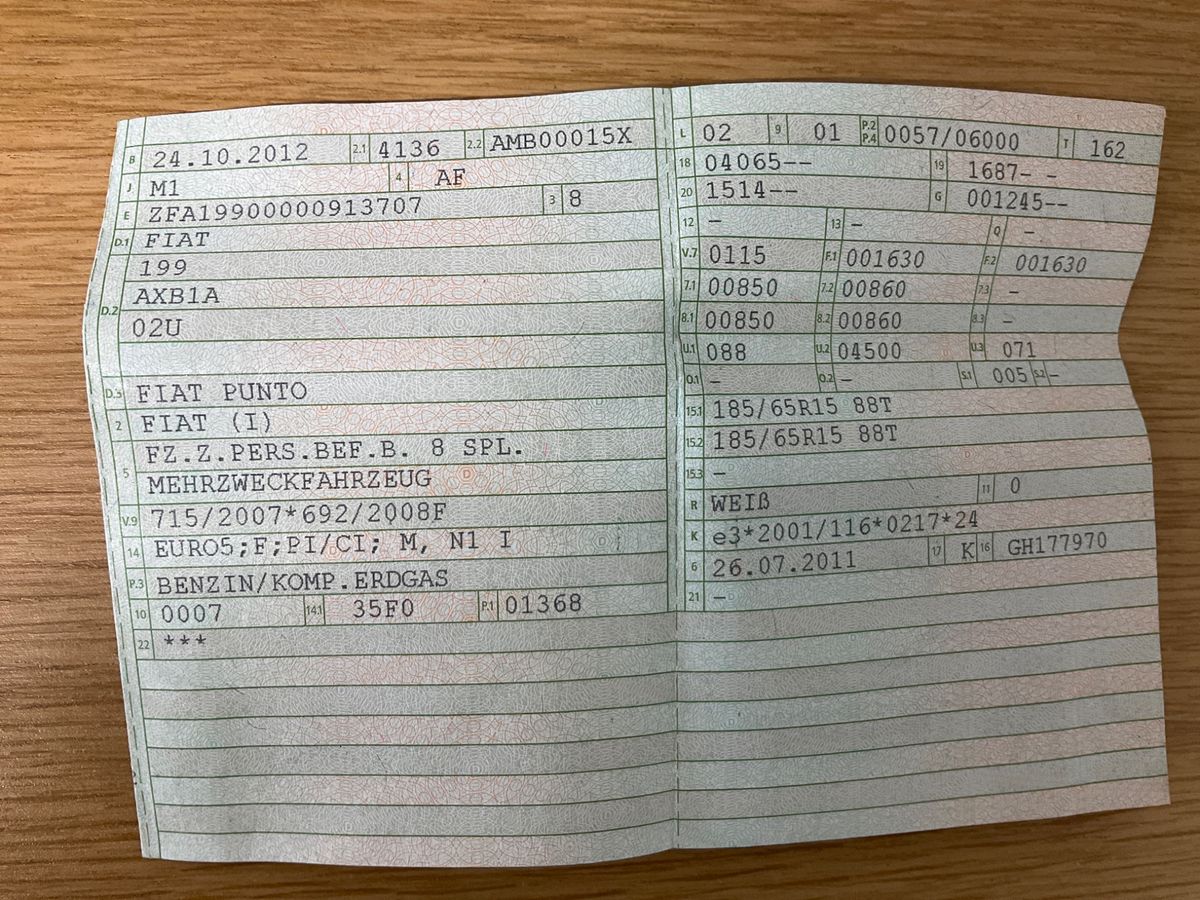 B 24.10.2012 2.1 4136 2.2 AMB00015X
J M1 4 AF
E ZFA19900000913707 3 8
D.1 FIAT
D.2 199
AXB1A
02U
D.3 FIAT PUNTO
2 FIAT (I)
5 FZ.Z.PERS.BEF.B. 8 SPL.
MEHRZWECKFAHRZEUG
V.9 715/2007*692/2008F
14 EURO5;F;PI/CI; M, N1 I
P.3 BENZIN/KOMP.ERDGAS
10 0007 14.1 35F0 P.1 01368
22 ***
L 02 9 01 P.2 P.4 0057/06000 T 162
18 04065-- 19 1687- -
20 1514-- G 001245--
12 - 13 - Q -
V.7 0115 F.1 001630 F.2 001630
7.1 00850 7.2 00860 7.3 -
8.1 00850 8.2 00860 8.3 -
U.1 088 U.2 04500 U.3 071
O.1 - O.2 - S.1 005 S.2 -
15.1 185/65R15 88T
15.2 185/65R15 88T
15.3 -
R WEIß 11 0
K e3*2001/116*0217*24
6 26.07.2011 17 K 16 GH177970
21 -